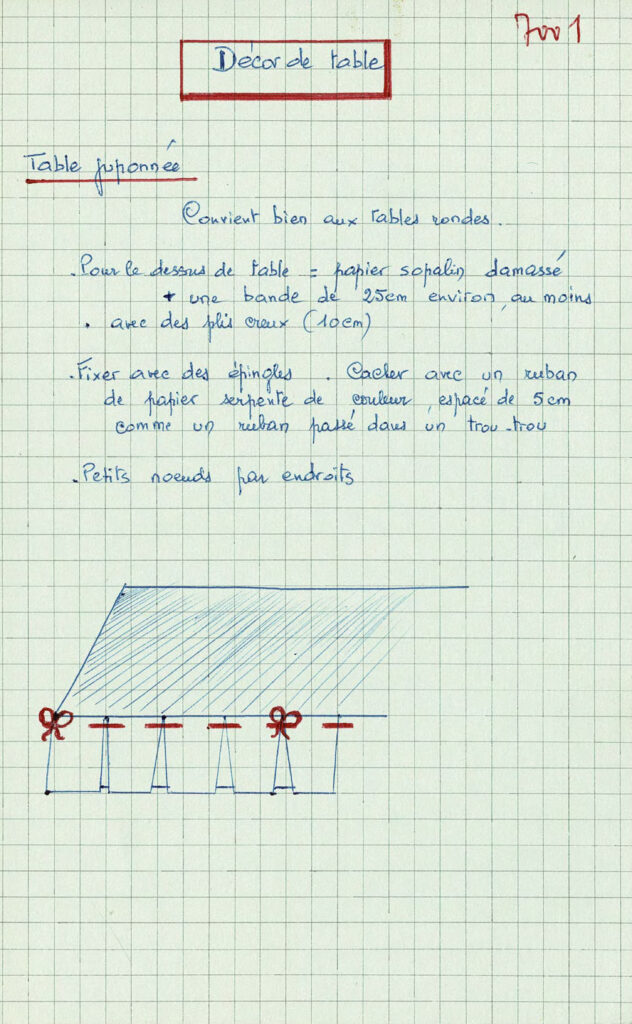 7001
Décor de table
Table juponnée
Convient bien aux tables rondes.
. Pour le dessus de table = papier sopalin damassé
+ une bande de 25cm environ, au moins
. avec des plis creux (10cm)
. Fixer avec des épingles. Cacher avec un ruban
de papier serpente de couleur, espacé de 5cm
comme un ruban passé dans un trou-trou
. Petits noeuds par endroits